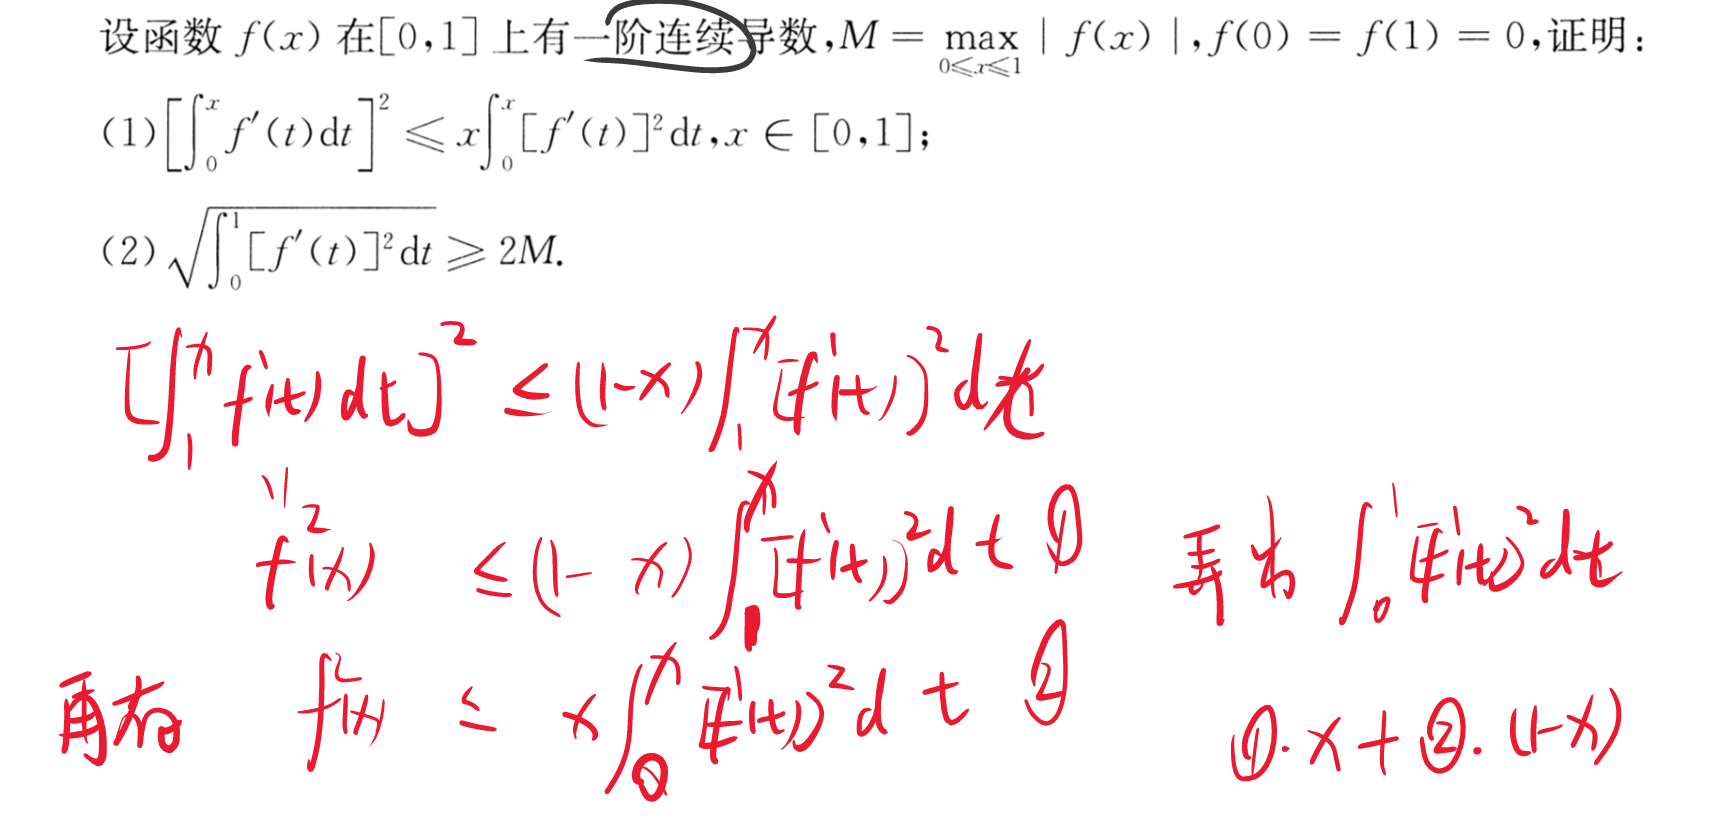 设函数 f(x) 在[0,1]上有一阶连续导数,M = max_{0≤x≤1} | f(x) |, f(0) = f(1) = 0,证明:
(1)[∫_0^x f′(t)dt]² ≤ x∫_0^x [f′(t)]²dt, x ∈ [0,1];
(2)√(∫_0^1 [f′(t)]²dt) ≥ 2M.
[∫_1^x f′(t)dt]² ≤ (1-x)∫_1^x [f′(t))²dt
॥
f²(x) ≤ (1-x)∫_1^x [f′(t))²dt ① 弄出 ∫_0^1 [f′(t))²dt
再有 f²(x) ≤ x∫_0^x [f′(t))²dt ②
①·x+②·(1-x)